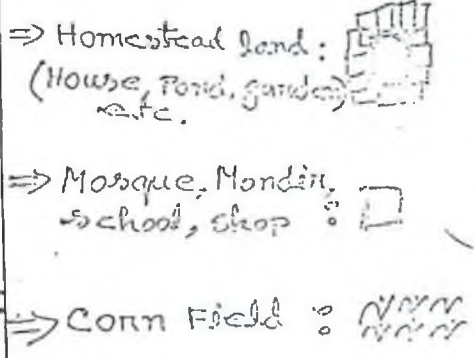 ⇒ Homestead land :
(House, Pond, garden)
etc.
⇒ Mosque, Mondir,
school, shop :
⇒ Corn Field :